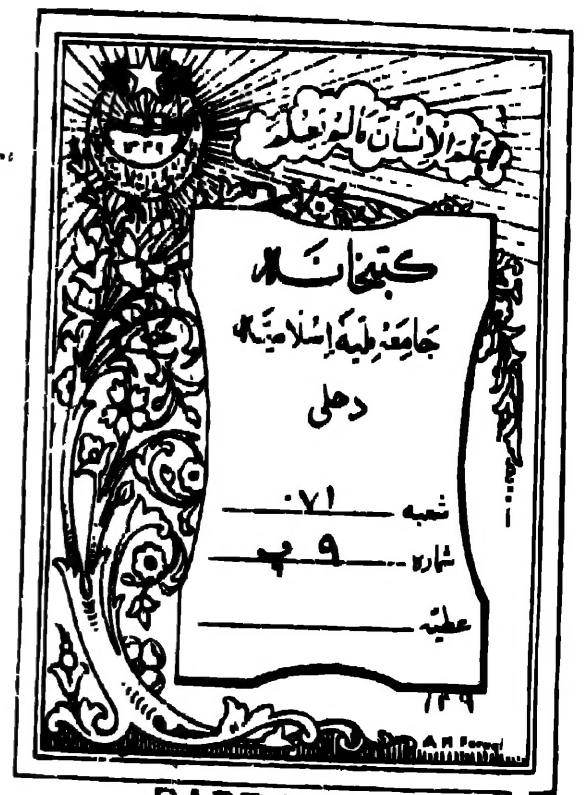 ۱۳۳۹
عَلَّمَ الْاِنْسَانَ مَا لَمْ يَعْلَمْ
کتبخانہ
جامعہ ملیہ اسلامیہ
دهلی
شعبہ ۰۷۱
شمارہ ۹ پ
عطیہ